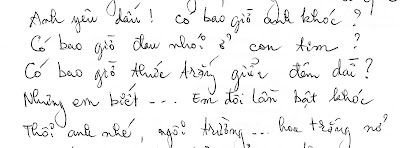 Anh yêu dấu! có bao giờ anh khóc?
Có bao giờ đau nhói ở con tim?
Có bao giờ thức trắng giữa đêm dài?
Nhưng em biết... Em đôi lần bật khóc
Thôi anh nhé, ngôi trường... hoa trắng nở